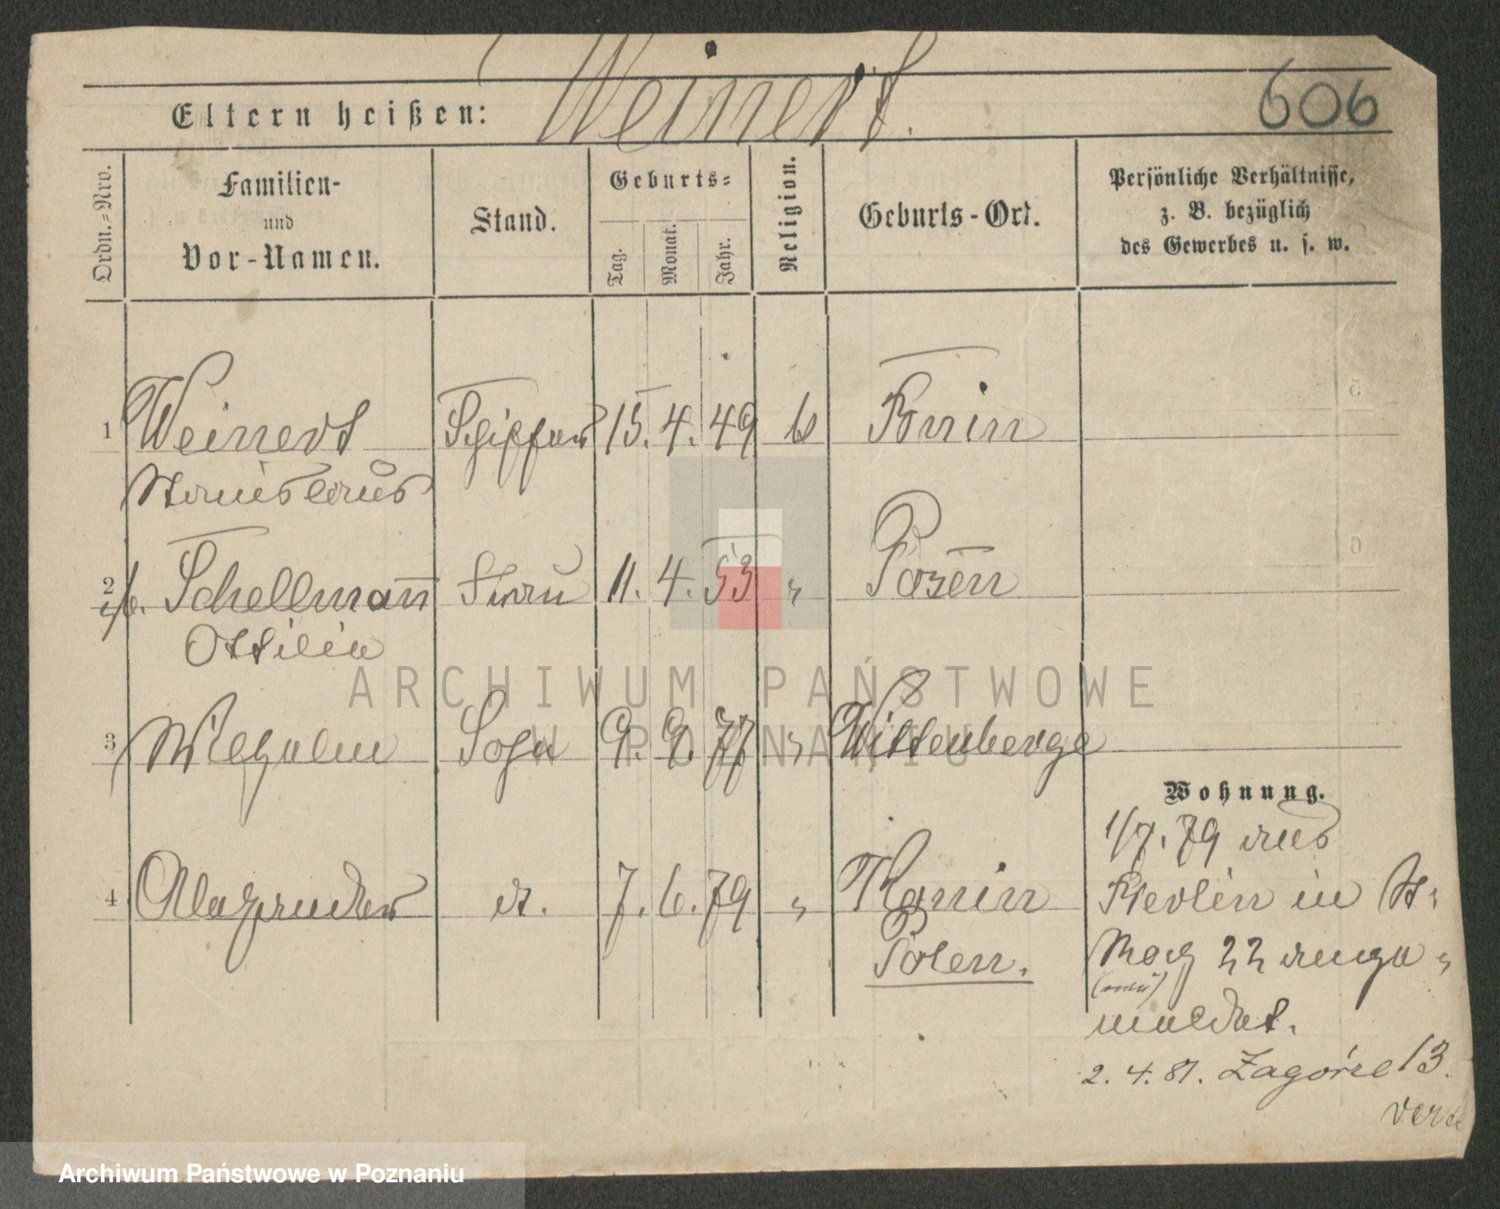 Weinert.
606
Eltern heißen:
Ordn.-Nro.
Familien-
und
Vor-Namen.
Stand.
Geburts-
Tag.
Monat.
Jahr.
Religion.
Geburts-Ort.
Persönliche Verhältnisse,
z. B. bezüglich
des Gewerbes u. s. w.
1 Weinert Schiffer 15. 4. 49 k Bnin
Stanislaus
2 Schellmann Frau 11. 4. 53 " Posen
Ottilie
3 Wilhelm Sohn 9. 9. 77 " Wittenberge
4 Alexander dt. 7. 6. 79 " Konin
Polen.
Wohnung.
1/7. 79 aus
Berlin in St.
22 ange-
meldet.
2. 4. 81. Zagórze 13.
ARCHIWUM PAŃSTWOWE
W POZNANIU
Archiwum Państwowe w Poznaniu